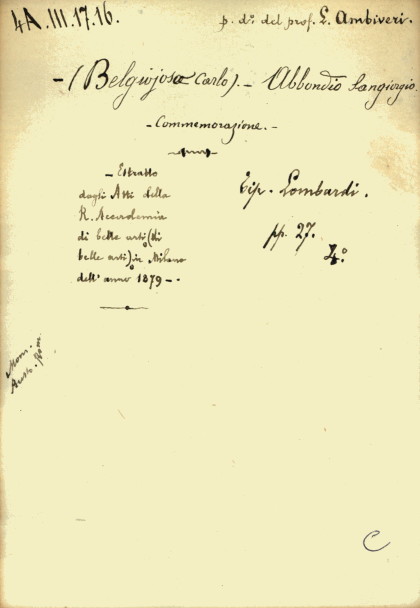 4A.III.17.16.
p. d: del prof. L. Ambiveri.
- (Belgiojoso Carlo). - Abbondio Sangiorgio.
- Commemorazione. -
- Estratto
dagli Atti della
R. Accademia
di belle arti (di
belle arti) in Milano
dell' anno 1879 - .
Tip. Lombardi.
pp. 27.
4.°
Mon.
C